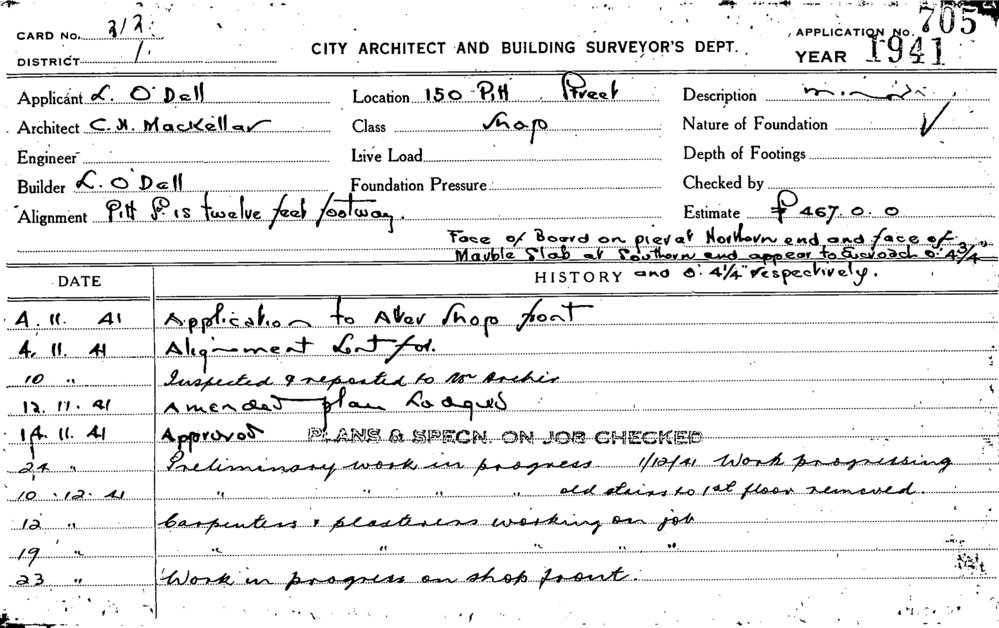 CARD No. 312
APPLICATION No. 705
DISTRICT 1.
CITY ARCHITECT AND BUILDING SURVEYOR'S DEPT.
YEAR 1941
Applicant L. O'Dell Location 150 Pitt Street Description
Architect C. H. Mackellar Class Shop Nature of Foundation ✓
Engineer Live Load Depth of Footings
Builder L. O'Dell Foundation Pressure Checked by
Alignment Pitt St. is twelve feet footway. Estimate £ 467. 0. 0
Face of Board on pier at Northern end and face of
Marble Slab at Southern end appear to Encroach 0' 4 3/4"
DATE HISTORY and 0' 4 1/4" respectively.
4. 11. 41 Application to Alter Shop front
4. 11. 41 Alignment for.
10 " Inspected & reported to Mr Archer
12. 11. 41 Amended plan Lodged
14. 11. 41 Approved PLANS & SPECN. ON JOB CHECKED
24 " Preliminary work in progress 1/12/41 Work progressing
10. 12. 41 " " " " old stairs to 1st floor removed.
12 " Carpenters & plasterers working on job
19 " " " " " "
23 " Work in progress on shop front.